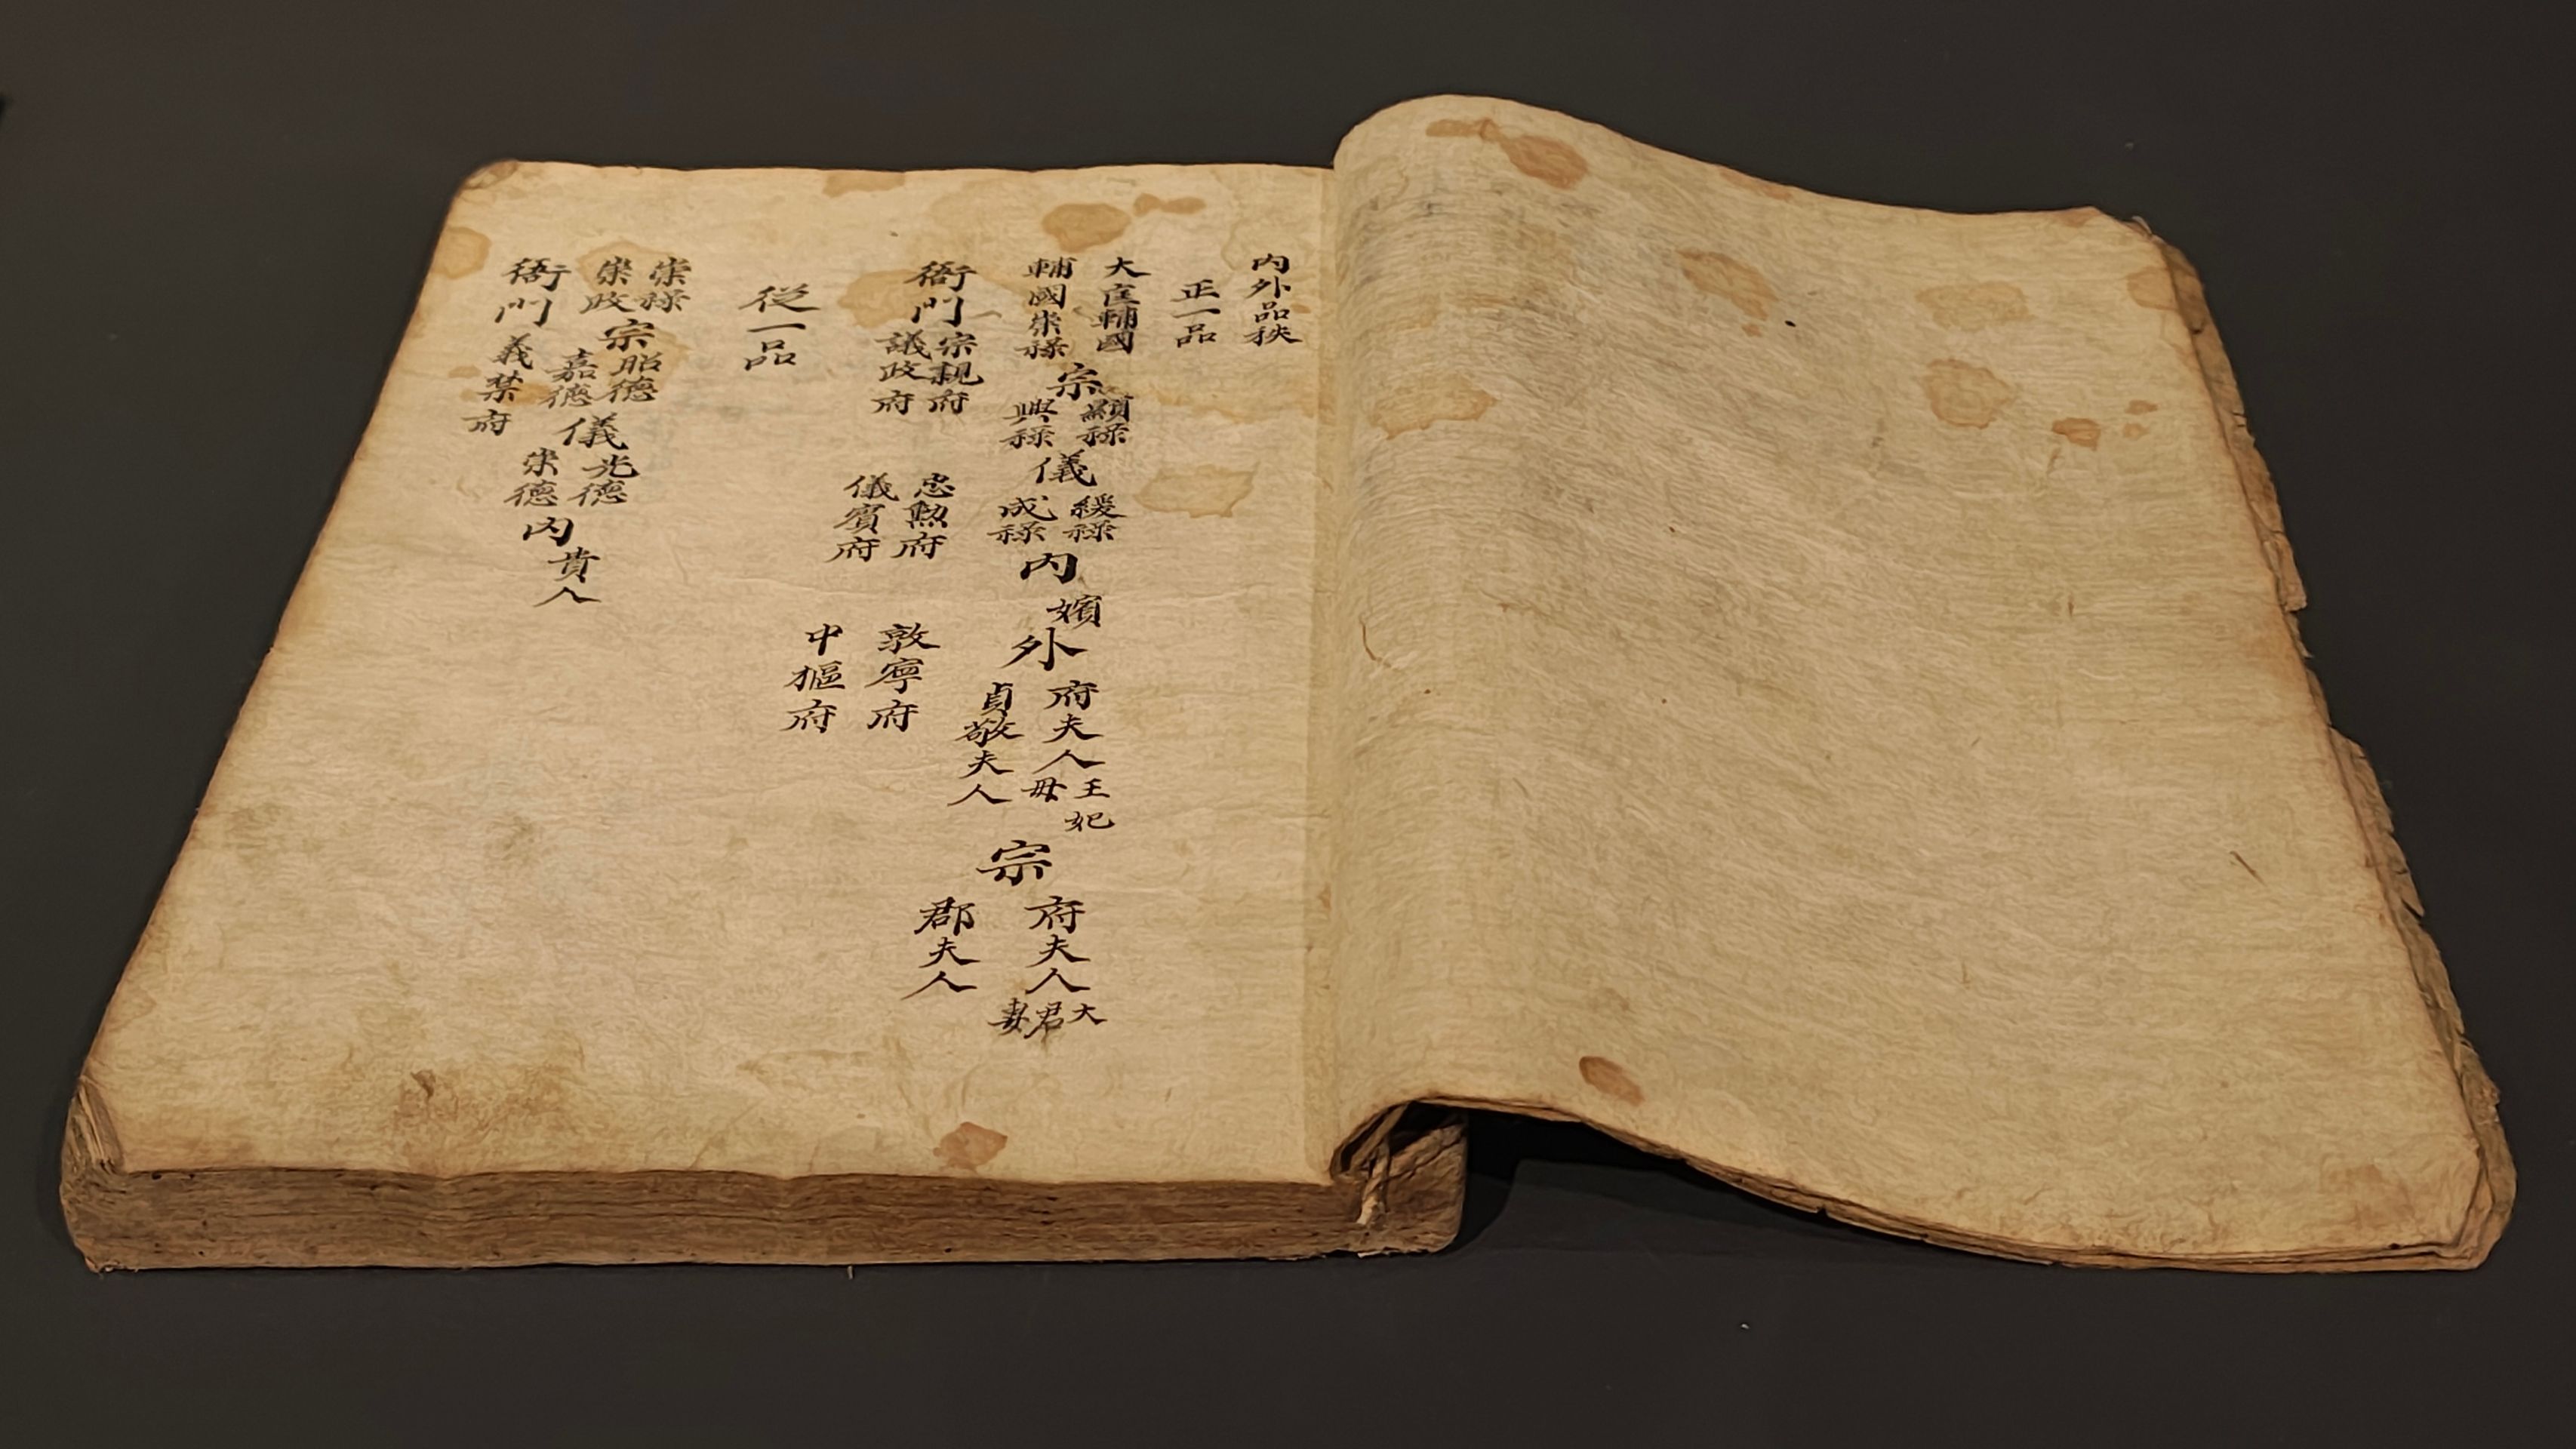 內外品秩
正一品
大匡輔國
輔國崇祿
宗
顯祿
興祿
儀
綏祿
成祿
內
嬪
外
府夫人
王妃
母
貞敬夫人
宗
府夫人
大君妻
郡夫人
衙門
宗親府
議政府
忠勳府
儀賓府
敦寧府
中樞府
從一品
崇祿
崇政
宗
昭德
嘉德
儀
光德
崇德
內
貴人
衙門
義禁府